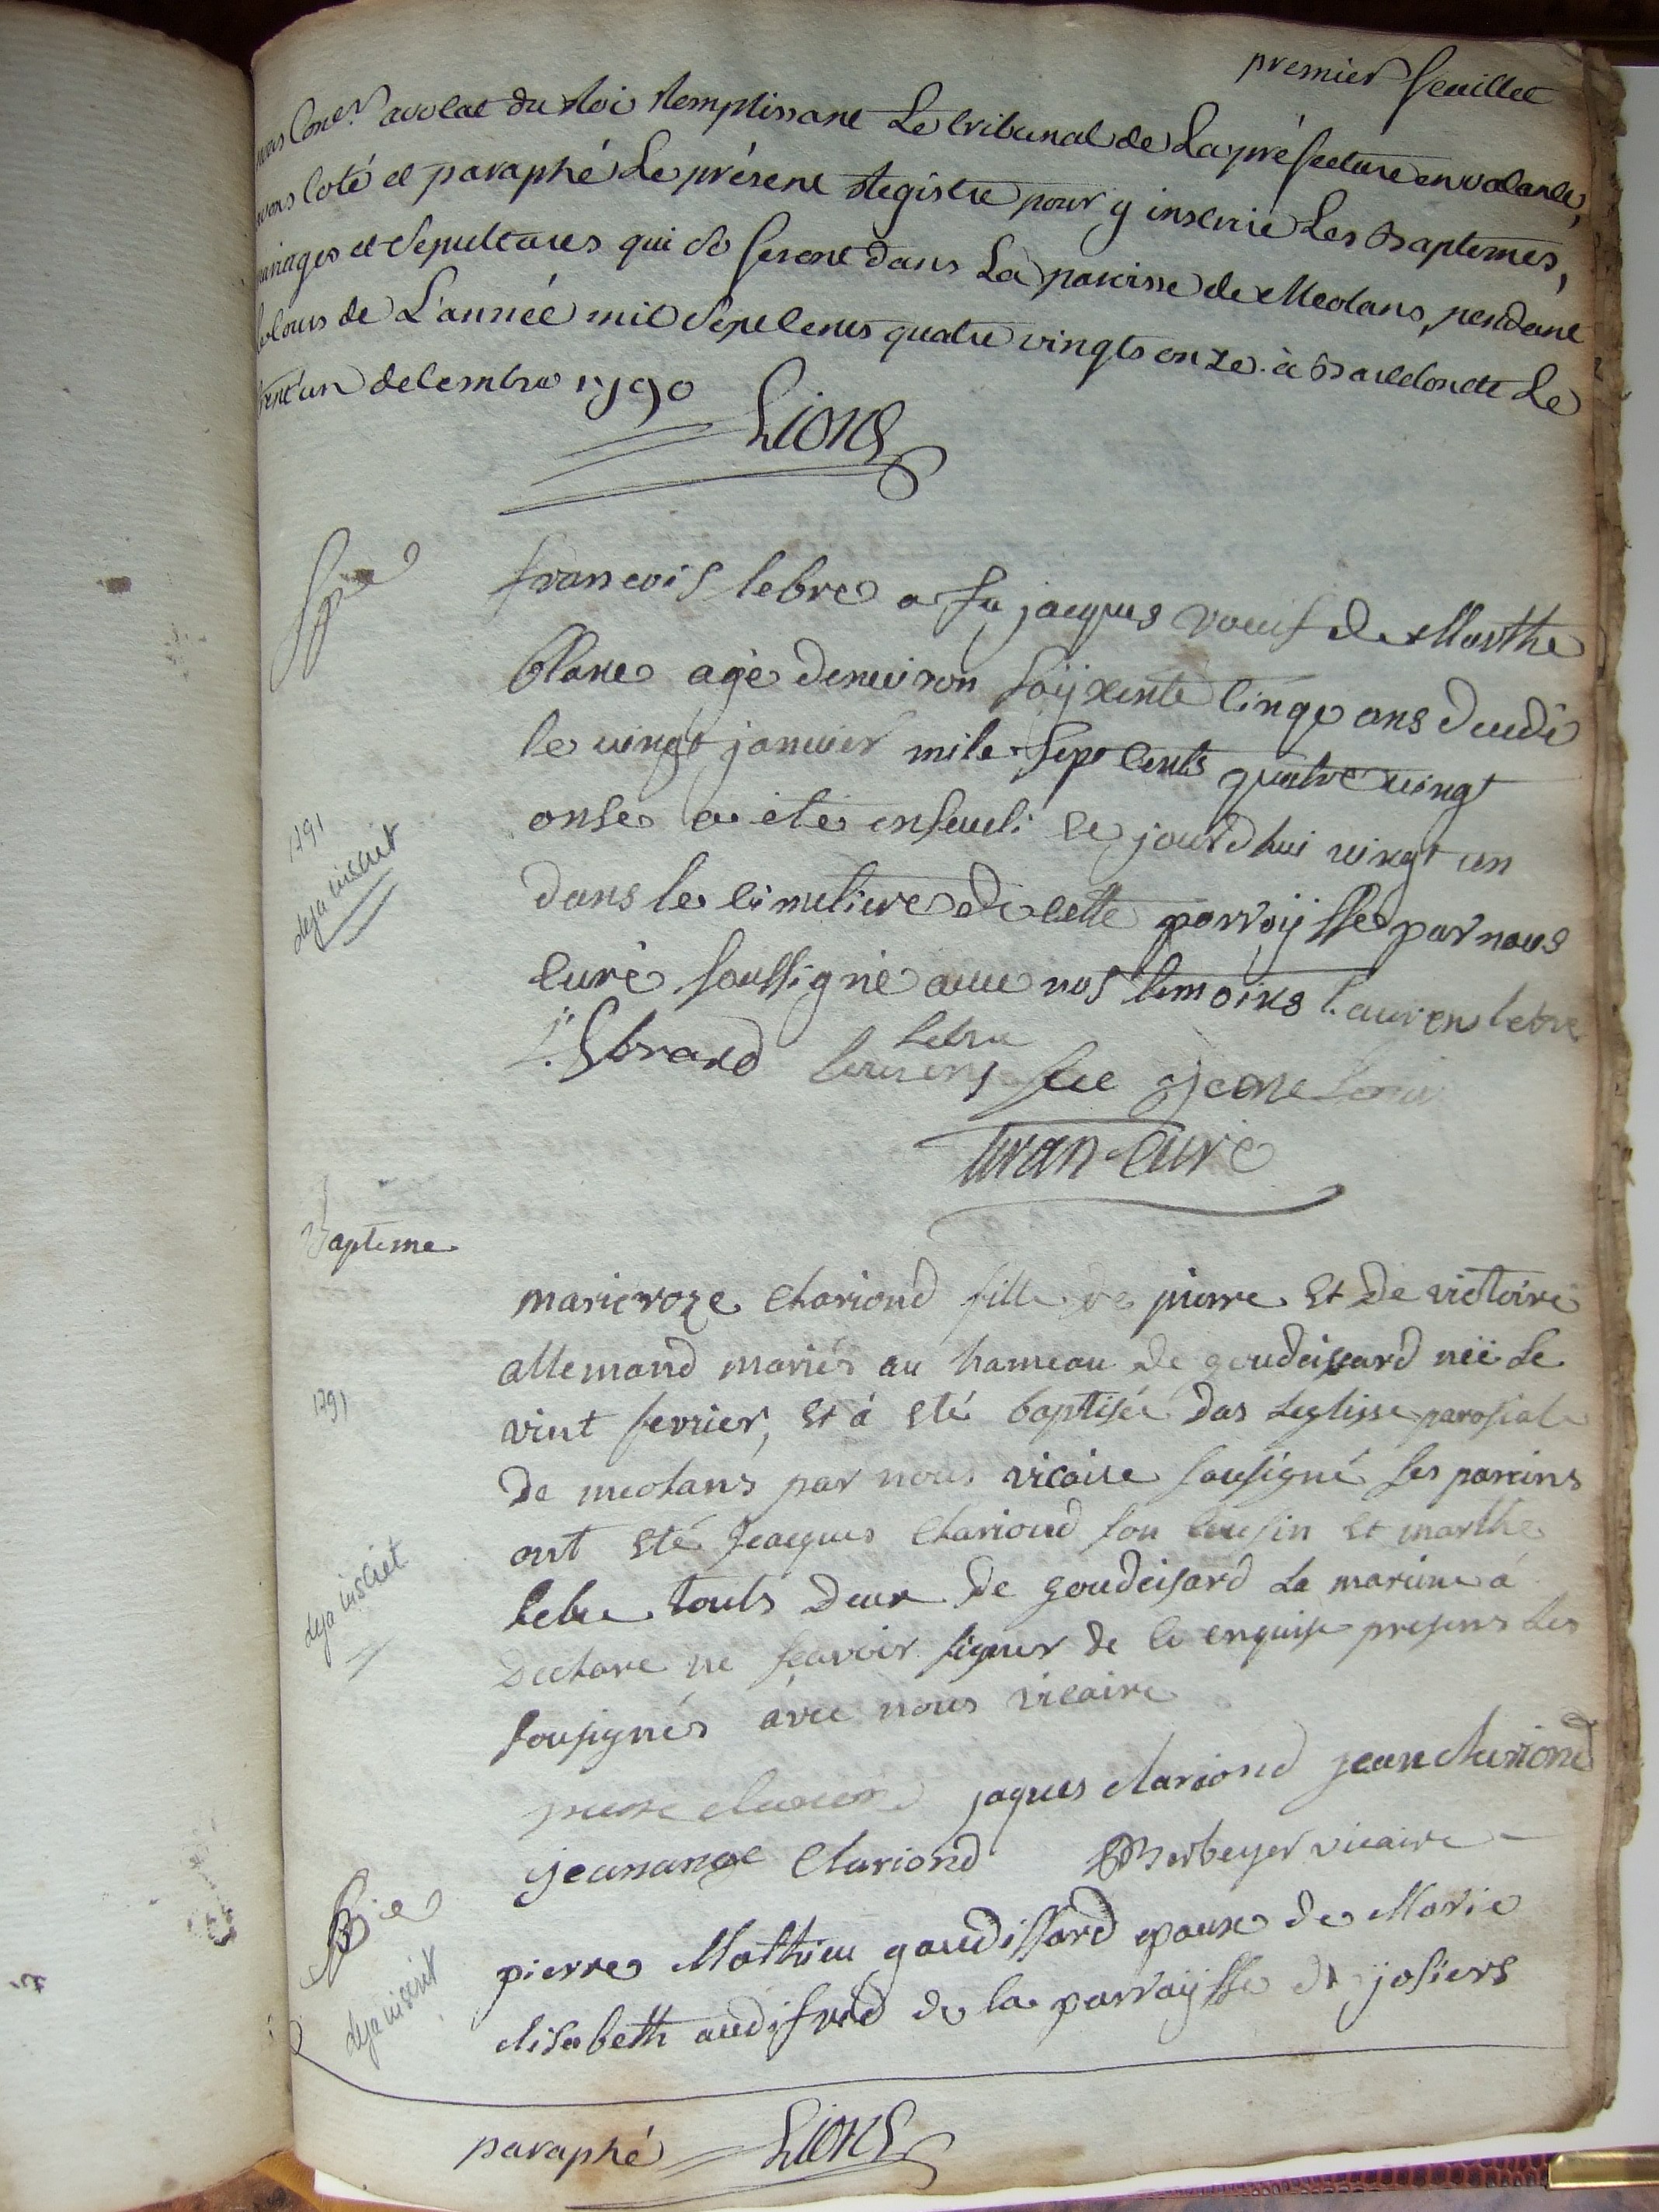 premier feuillet
nous Con.er avocat du Roi Remplissant Le tribunal de La préfecture en vacance,
avons Coté et paraphé Le présent Registre pour y inscrire Les Baptemes,
mariages et Sepultures qui Se feront dans La paroisse de Meolans, pendant
le Cours de L'année mil Sept Cents quatre vingts onze. à Barcelonete Le
trent'un decembre 1790
Lions
Spre
francois lebre a fu jacques veuf de Marthe
blanc agé denviron soÿxente Cinqe ans decedé
le vingt janvier mile sept Cents quatre vingt
1791
onse a eté enseveli ce jourdhui vingt un
deja inscrit
dans le cimetiere de cette parroÿsse par nous
curé soussigné avec nos temoins laurens lebre
j. Ebrard
lebre
laurens
Turan Curé
Bapteme
marieroze Clariond fille de pierre Et De victoire
allemand mariés au hameau de goudeissard neé Le
1791
vint fevrier, Et á Eté baptisée Das Leglisse parosiale
De meolans par nous vicaire sousigné ses parains
ont Eté Jeacques Clariond son Cousin Et marthe
deja inscrit
Lebre touts Deux De goudeisard La marine á
Declare ne scavoir signer de Ce enquise presens Les
sousignés avec nous vicaire
pierre clariond jaques clariond jean clariond
jeanange Clariond Berbeyer vicaire
pierre Mathieu gaudissard epoux de Marie
deja inscrit
elisabeth audifred de la parroÿsse de josiers
paraphé Lions